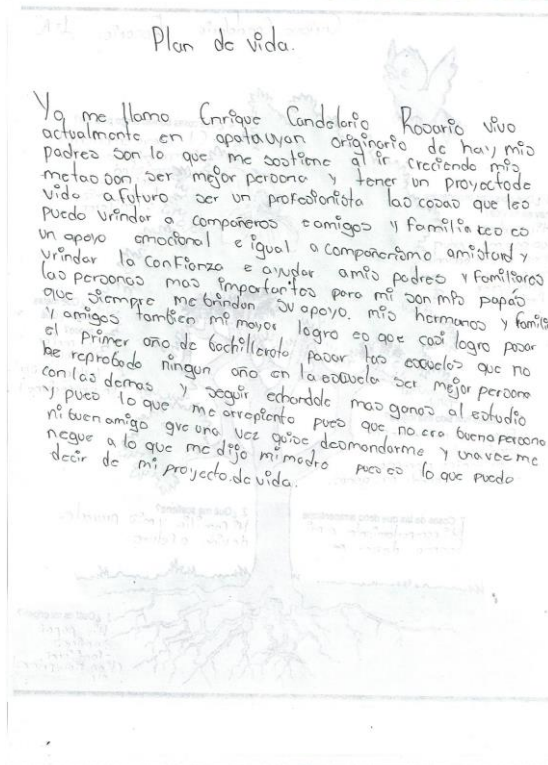 Plan de vida.
Yo me llamo Enrique Candelario Rosario vivo
actualmente en apatauyan originario de hay mis
padres son lo que me sostiene al ir creciendo mis
metas son ser mejor persona y tener un proyecto de
vida a futuro ser un profesionista las cosas que les
puedo vrindar a compañeros e amigos y familiares es
un apoyo emocional e igual a compañerismo amistard y
vrindar la confianza e ayudar a mis padres y familiares
las personas mas importantes para mi son mis papás
que siempre me brindan su apoyo. mis hermanos y famili
y amigos tambien mi mayor logro es que casi logro pasar
el primer año de bachillerato pasar las escuelas que no
he reprobado ningun año en la escuela ser mejor persona
con las demas y seguir echandole mas ganas al estudio
y pues lo que me arrepiento pues que no era buena persona
ni buen amigo que una vez quise desmandarme y una vez me
negue a lo que me dijo mi madre pues es lo que puedo
decir de mi proyecto de vida.